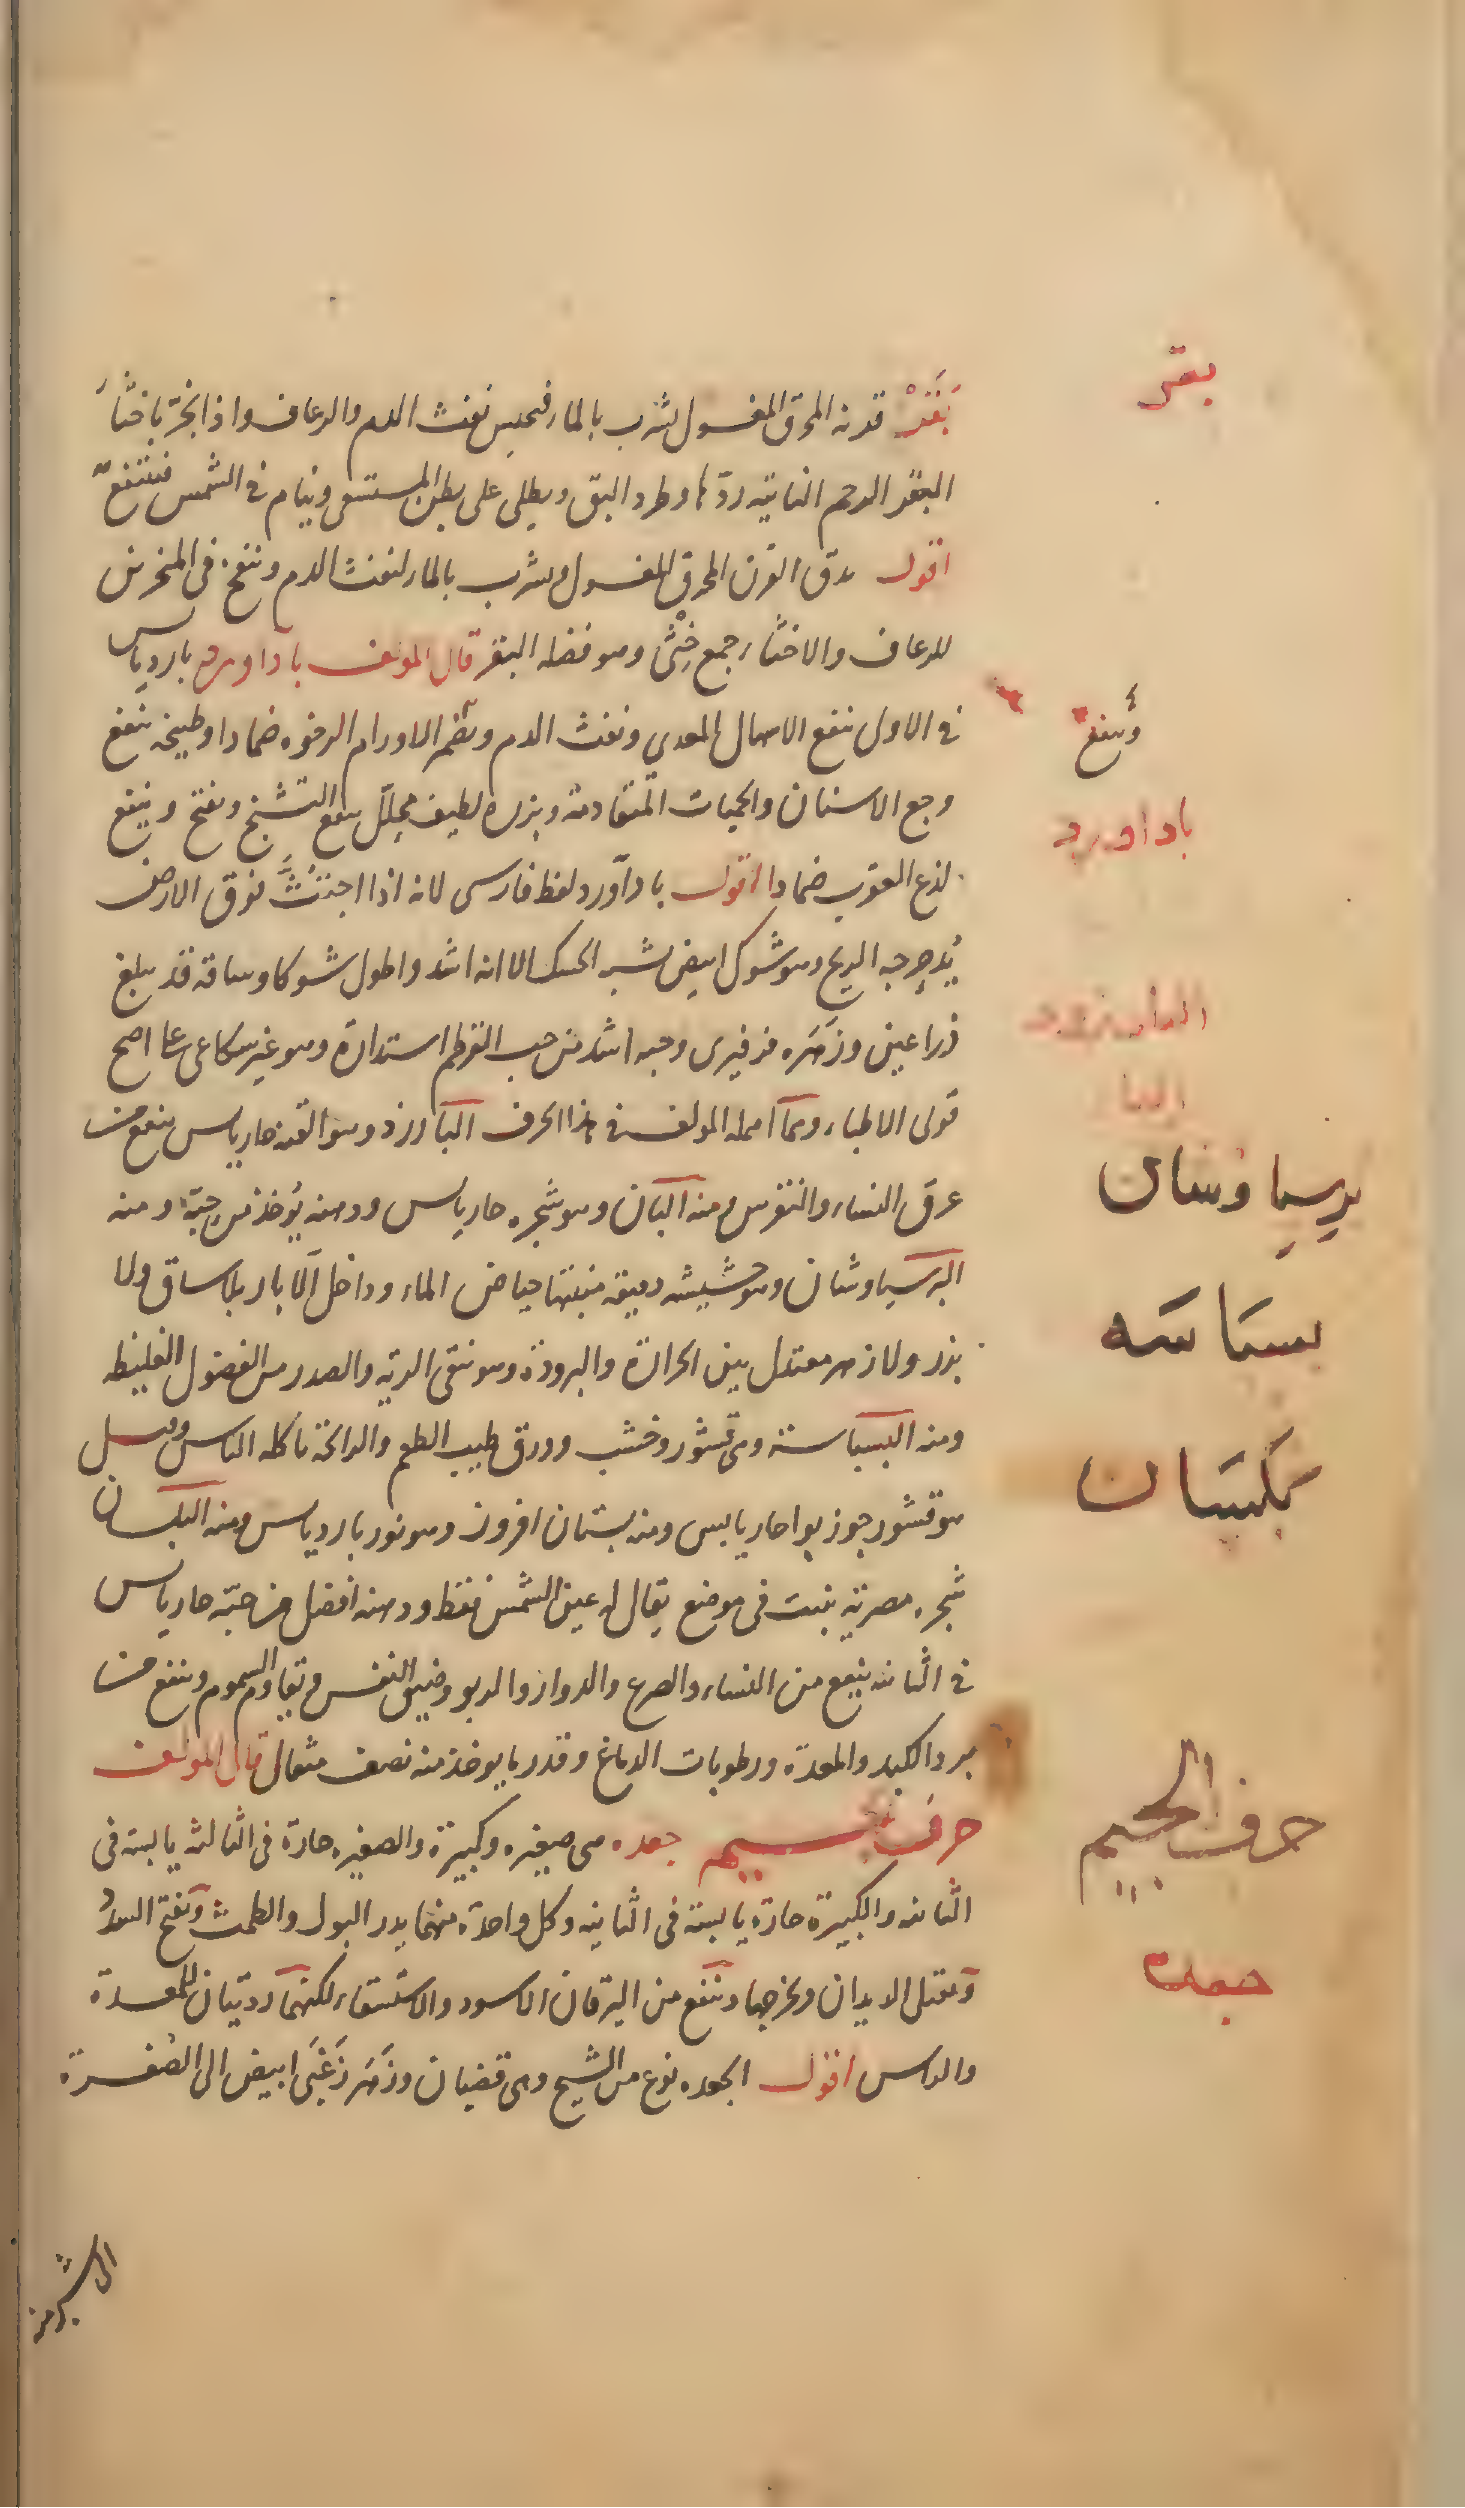 بقر
بَقَرْ قرنه المحرق المغسول يشرب بالماء فيحبس نفث الدم والرعاف واذا بخر باخثاء
البقر الرحم الناتيه ردّها وطرد البق ويطلى على بطن المستسقى وينام فى الشمس فينتفع
اقول يدق القرن المحرق المغسول ويشرب بالماء لنفث الدم وينفخ فى المنخرين
للرعاف والاخثاء جمع خِثْى وهو فضله البقر قال المولف باداورد بارد يابس
فى الاول ينفع الاسهال المعدى ونفث الدم ويضمر الاورام الرخوه ضمادا وطبيخه ينفع
وينفع
وجع الاسنان والحميات المتقادمة وبزره لطيف محلل ينفع التشنج ويفتح وينفع
باداورد
لذع العقرب ضمادا اقول باداورد لفظ فارسى لانه اذا اجتثت فوق الارض
يُدحرجه الريح وهو شوك ابيض يشبه الحسك الا انه اشد واطول شوكا وساقه قد يبلغ
ذراعين وزهره فرفيرى وحبه اشد من حب القرطم استدارة وهو غير شكاعى على اصح
قولى الاطباء ومما اهمله المولف فى هذا الحرف البارزد وهو القنه حار يابس ينفع من
برسياوشان
عرق النساء والنقرس ومنه البان وهو شجره حار يابس ودهنه يوخذ من حبّه ومنه
البرسياوشان وهو حشيشه دقيقه منبتها حياض الماء وداخل الابار بلا ساق ولا
بسباسه
بزر ولا زهر معتدل بين الحرارة والبرودة وهو ينقى الرية والصدر من الفضول الغليظه
ومنه البسباسة وهى قشور وخشب وورق طيب الطعم والرائحة تاكله الناس وقيل
بلسان
هو قشور جوز بوا حار يابس ومنه بستان افروز وهو نور بارد يابس ومنه البلسان
شجره مصرية ينبت فى موضع يقال له عين الشمس فقط ودهنه افضل من حبّه حار يابس
فى الثانيه ينفع من النساء والصرع والدوار والربو وضيق النفس ويقاوم السموم وينفع من
برد الكبد والمعدة ورطوبات الدماغ وقدر ما يوخذ منه نصف مثقال قال المولف
حرف الجيم
حرف الجيم جعده هى صغيره وكبيرة والصغيره حارة فى الثالثه يابسة فى
الثانيه والكبيرة حارة يابسة فى الثانيه وكل واحدة منهما يدر البول والطمث ويفتح السدد
جعده
ويقتل الديدان ويخرجها وينفع من اليرقان الاسود والاستسقاء لكنهما رديتان للمعدة
والراس اقول الجعده نوع من الشيح وهى قضبان وزهر زغبى ابيض الى الصفرة